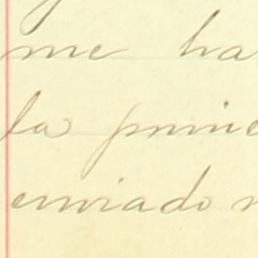 me ha
la prime
enviado